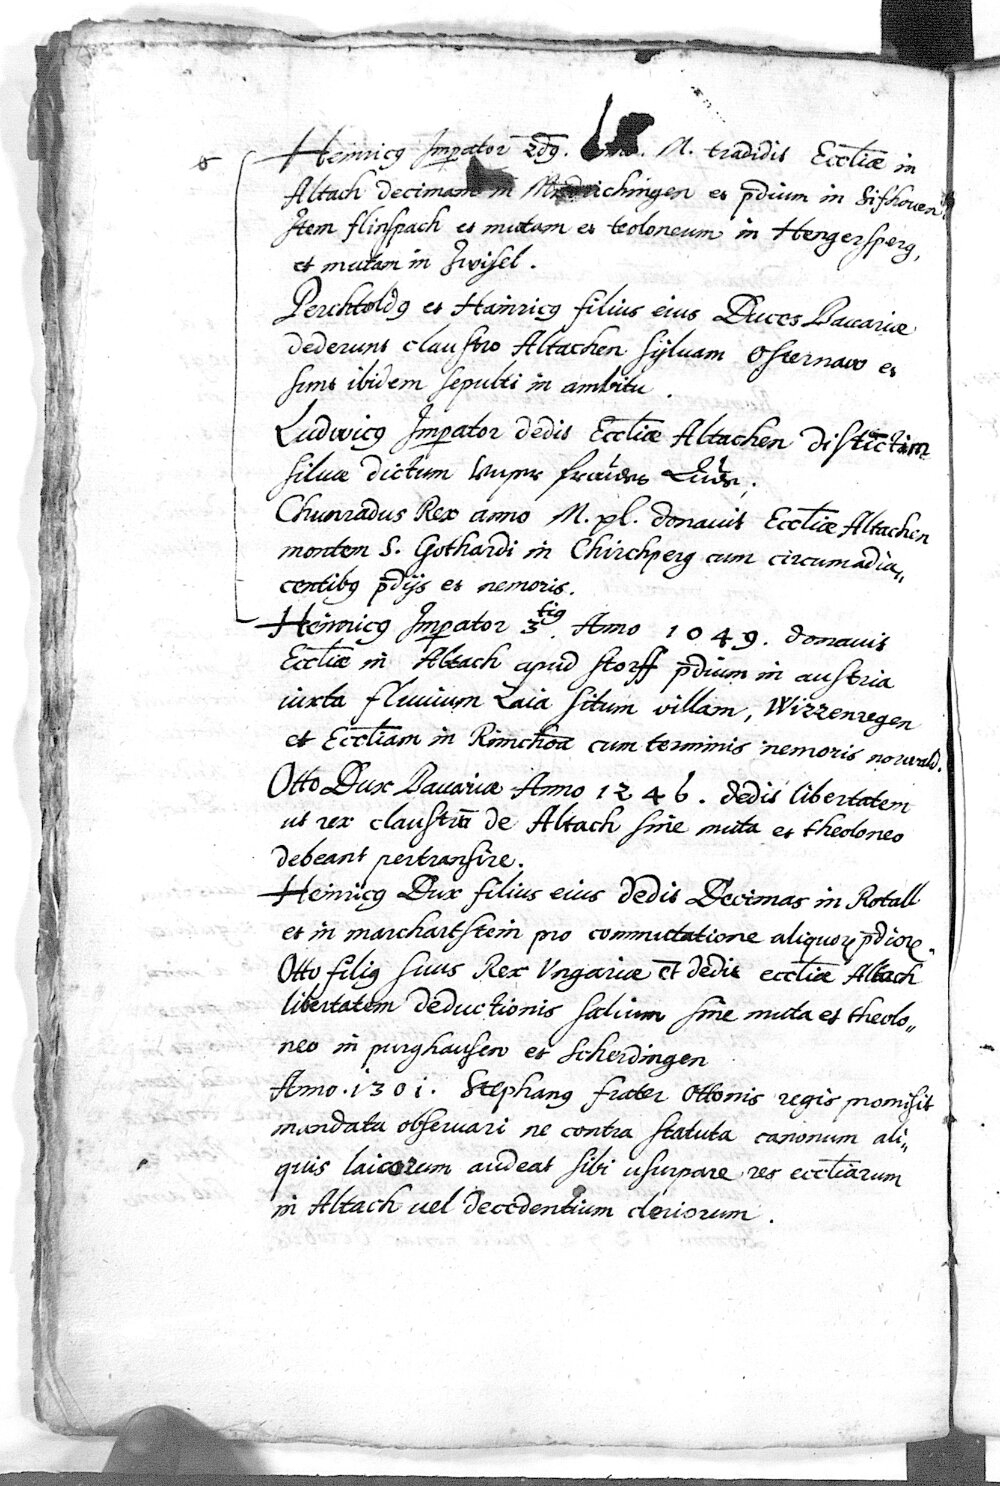 Heinricꝯ Impator 2dꝯ. M. tradidit Eccliæ in
Altach decimam in et pdium in Sifhouen
Item flinspach et mutam et teoloneum in Hengersperg,
et mutam in Zwisel.
Perchtoldꝯ et Hainricꝯ filius eius Duces Bauariæ
dederunt claustro Altachen syluam Osternaw et
sunt ibidem sepulti in ambitu.
Ludwicꝯ Impator dedit Eccliæ Altachen
siluæ dictum
Chunradus Rex anno M. pl. donauit Eccliæ Altachen
montem S. Gothardi in Chirchperg cum circumadia„
centibꝯ pdijs et nemoris.
Heinricꝯ Impator 3tiꝯ. Anno 1049. donauit
Eccliæ in Altach apud storff pdium in austria
iuxta fluuium Laia situm villam, Wizzenregen
et Eccliam in Rimchoa cum terminis nemoris norwald.
Otto Dux Bauariæ Anno 1246. dedit libertatem
ut rex claustru de Altach sine muta et theoloneo
debeant pertransire.
Heinricꝯ Dux filius eius dedit Decimas in Rotall
et in marchartstein pro commutatione aliquoꝝ pdioꝝ.
Otto filiꝯ suus Rex Vngariæ et dedit eccliæ Altach
libertatem deductionis salium sine muta et theolo„
neo in purghausen et scherdingen
Anno. 1301. Stephanꝯ frater Ottonis regis promisit
mandata obseruari ne contra statuta canonum ali„
quis laicorum audeat sibi usurpare res eccliarum
in Altach uel decedentium cleriorum.